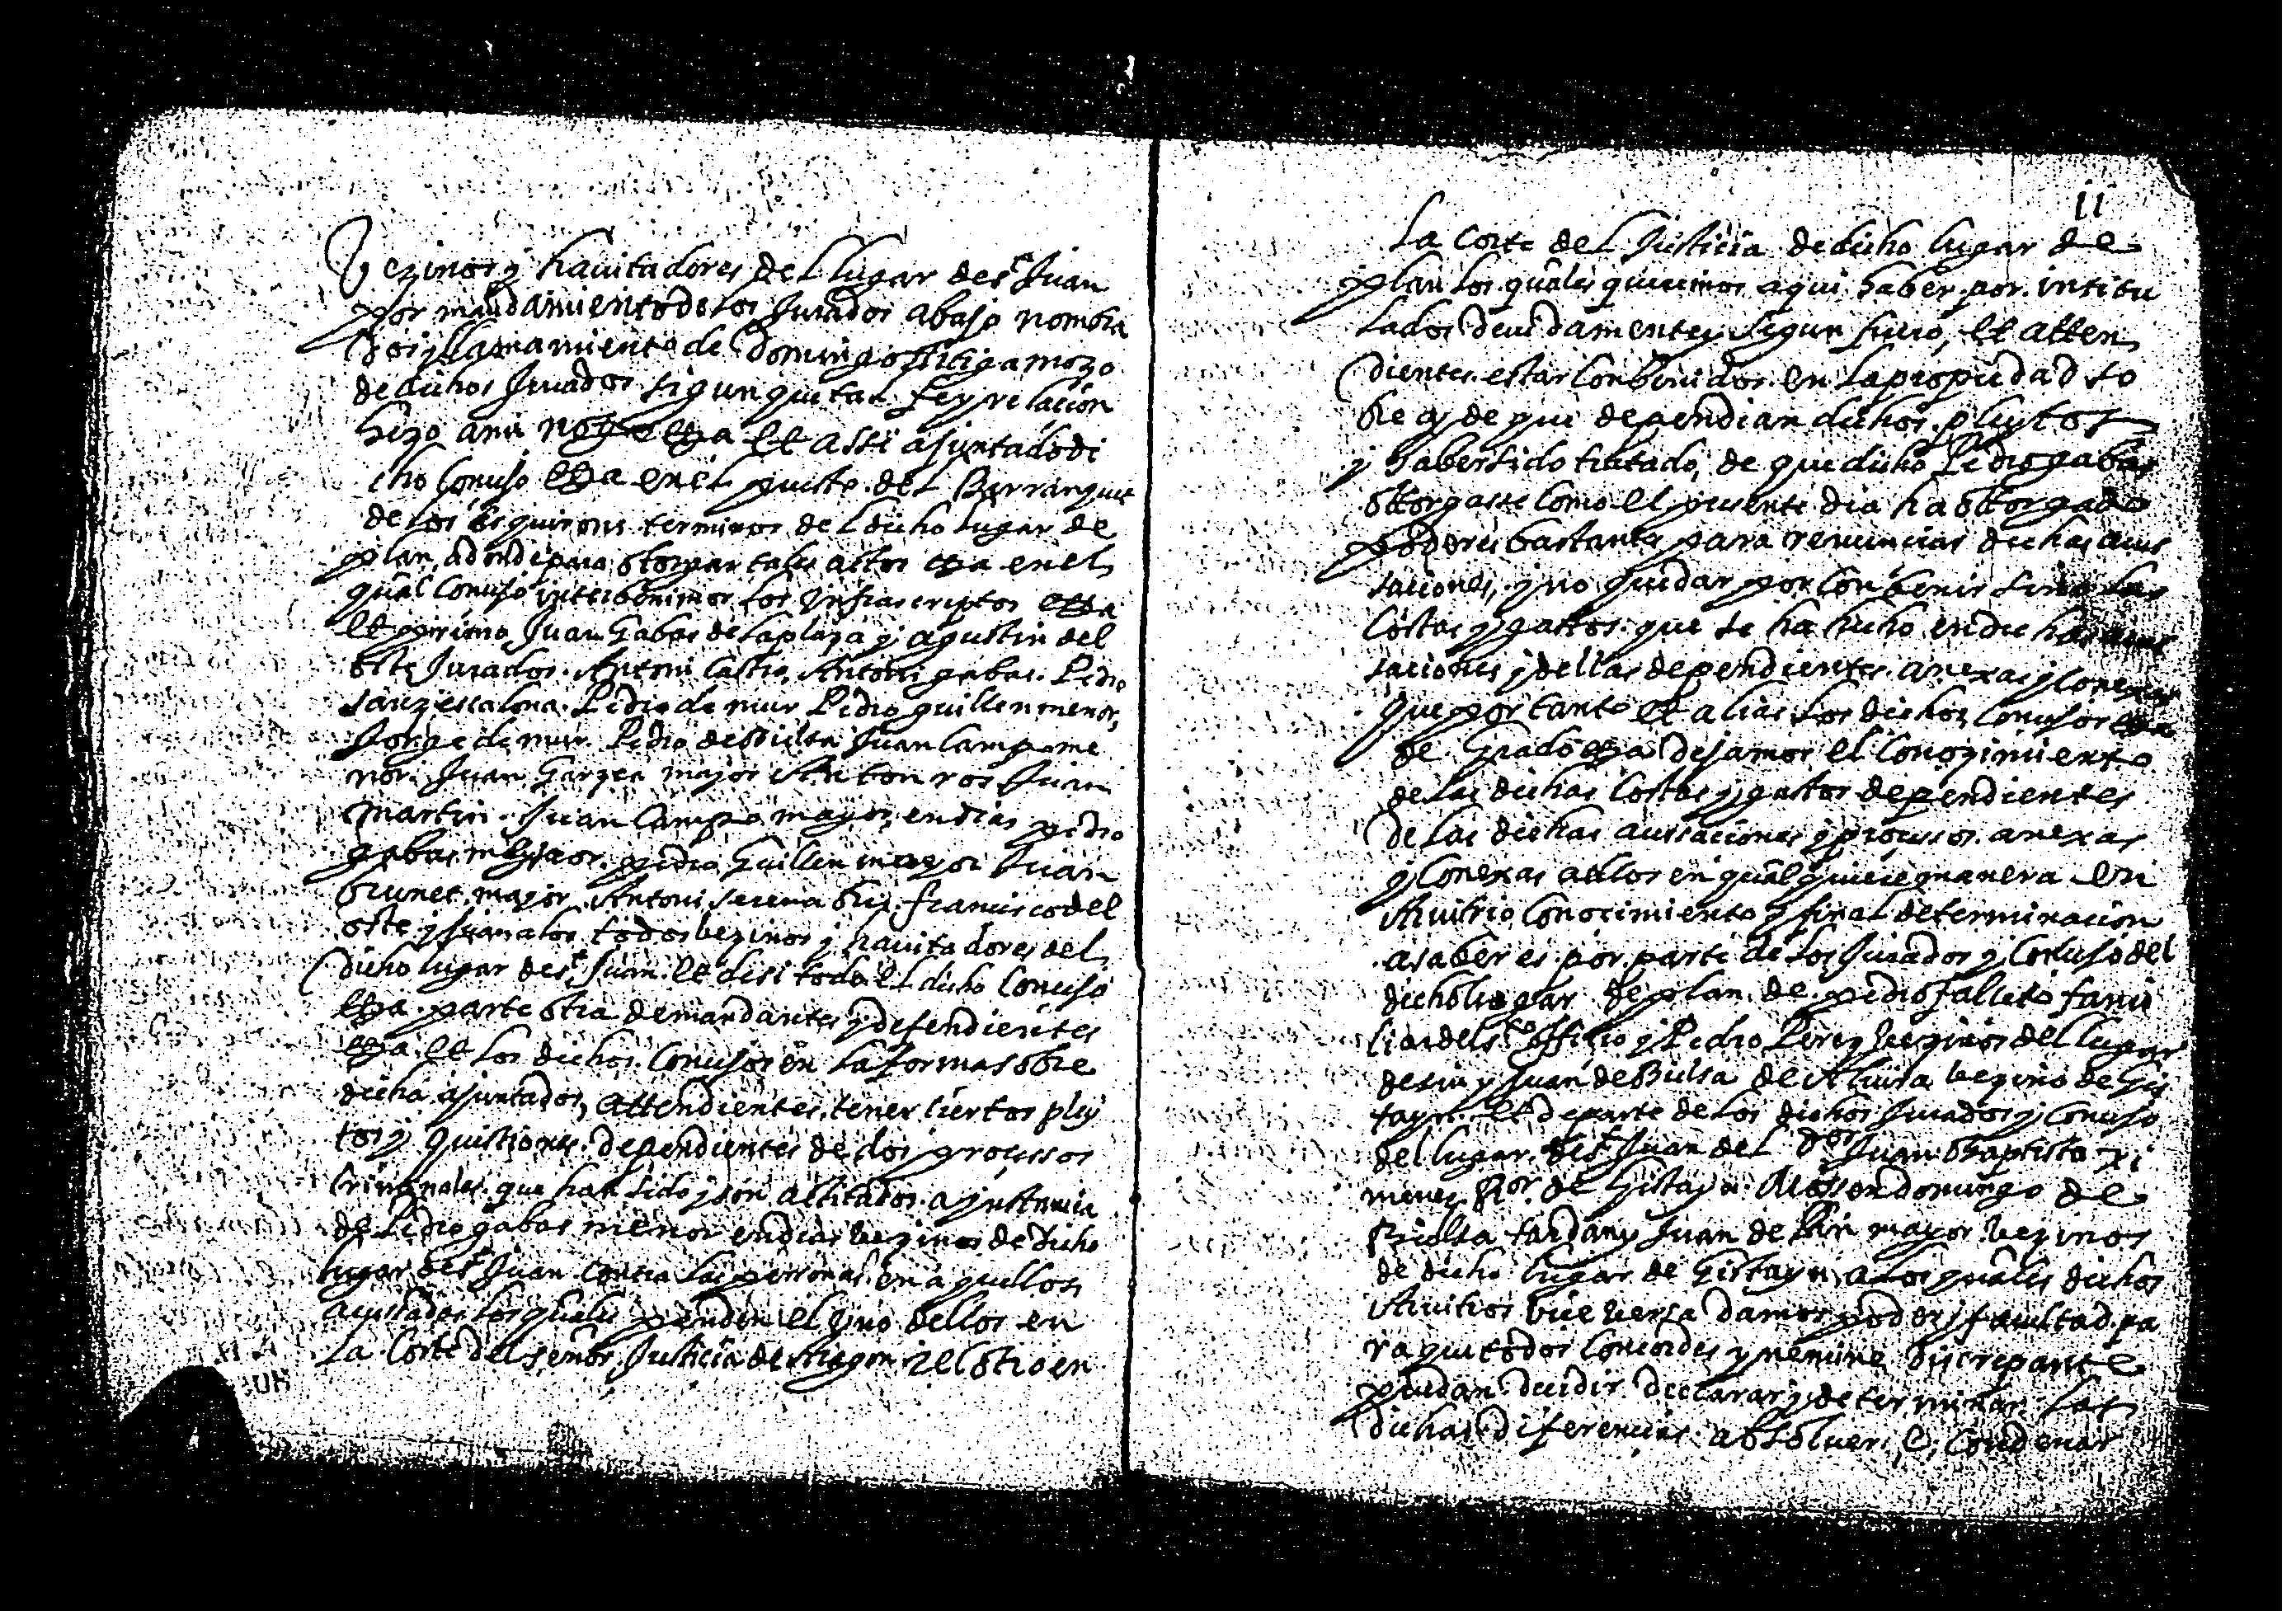 Vezinos y hauitadores del lugar de st Juan
por mandamiento de los Jurados abajo nombra
dos y llamamiento de Domingo mozo
de dichos Jurados sigun que tal fe y relacion
hizo a mi not etza et assi ajuntado di
cho Conçejo etza en el puesto del Barranquet
de los terminos del dicho lugar de
plan adonde para otorgar tales actos etza en el
qual Consejo interbenimos los infrascriptos etza
et primo Juan Gabas de la plaza y agustin del
oste Jurados. Antoni Castro Antoni gabas. Pedro
sanz escalona. Pedro de mur Pedro guillen menor,
Jorge de mur Pedro de Bielsa Juan Campo me
nor. Juan Garzea major Anton ros Juan
martin. Juan Campo mayor en dias pedro
gabas mayor pedro Guillen mayor Juan
brunet major Antoni francisco del
oste y todos bezinos y hauitadores del
dicho lugar de st Juan. et desi todo el dicho Concejo
etza parte otra demandantes y defendientes
etza et los dichos Concejos en la forma sobre
dicha ajuntados, attendientes tener ciertos pley
tos y quistiones dependientes de dos processos
Criminales que han sido y son actitados a instancia
de Pedro gabas menor en dias bezinos de dicho
lugar de st Juan contra las personas en aquellos
acusados los quales penden el uno dellos en
La Corte del señor Justicia de Aragon y el otro en
11
La Corte del Justicia de dicho lugar de
plan los quales queremos aqui haber por intitu
lados deuidamente y segun fuero, et atten
dientes estar Conbenidos en la propiedad so
bre q de que dependian dichos pleytos
y haber sido tratado, de que dicho Pedro gabas
ottorgasse como el presente dia ha ottorgado
poderes bastantes para renunciar dichas acus
saciones, y no quedar por Conbenir sino las
Costas y gastos que se ha hecho en dichas acus
saciones y dellas dependientes anexas y conexas
Que por tanto et alias los dichos Concejos etza
de Grado etza dejamos el Conozimiento
de las dichas Costas y gastos dependientes
de las dichas acussaciones y processos anexas
y Conexas a ellos en qualquiere manera en
Auitrio Conocimiento y final determinacion
a saber es por parte de los Jurados y Consejo del
dicho lugar de plan de pedro falleto fami
liar del sto officio y Pedro Perez bezinos del lugar
de sin y Juan de Bielsa de Aluira bezino de Gis
tayn. et de parte de los dichos Jurados y Concejo
del lugar de st Juan del dor Juan Baptista xi
menez Ror de Gistayn Mossen domingo de
Bielsa fardan y Juan de bin mayor bezinos
de dicho lugar de Gistayn a los quales dichos
Auitros bice bersa damos poder y facultad pa
ra que todos Concordes y nemine discrepante
puedan decidir declarar y determinar las
dichas diferencias absoluer, e, condenar